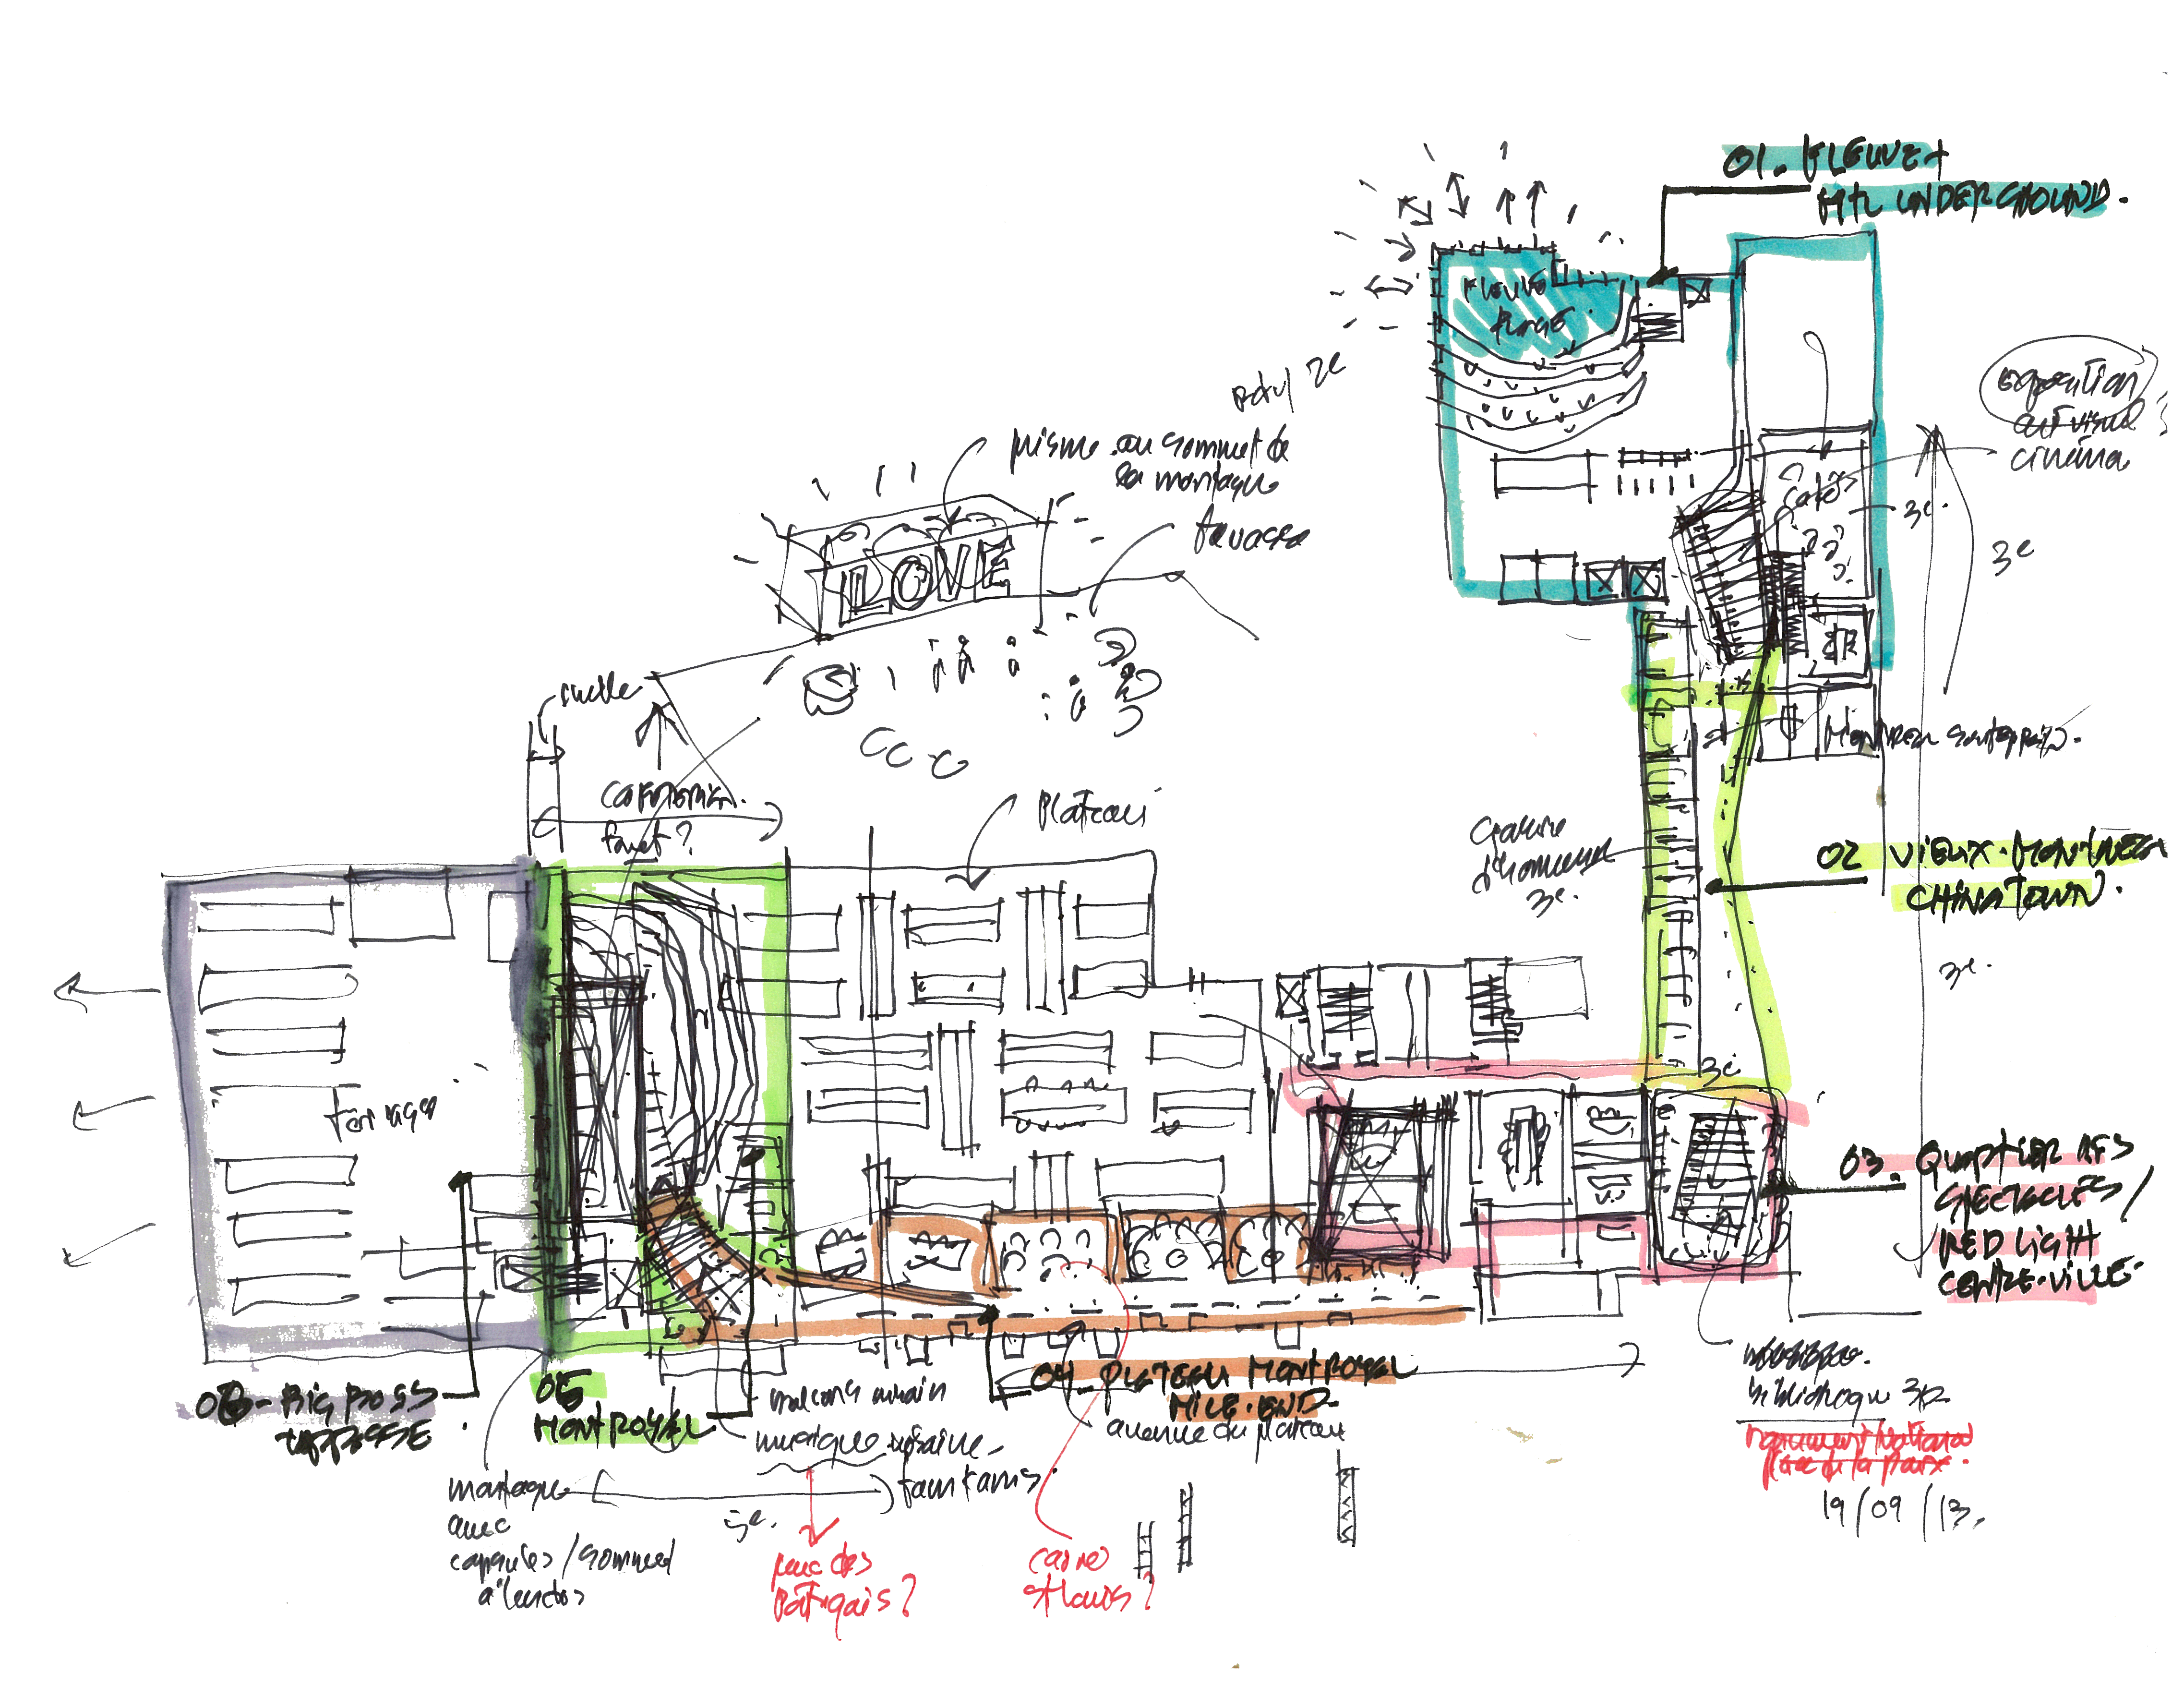 01. FLEUVE +
MTL UNDERGROUND.
FLEUVE
exposition
art visuel
cinéma
café
3e.
3e
2e
prisme au sommet de
la montagne
LOVE
terrasse
ruelle
forêt ?
Plateau
Galerie
d'honneur
3e.
02 VIEUX-MONTREAL
CHINATOWN.
3e.
3e
terrasse
03. QUARTIER DES
SPECTACLES /
RED LIGHT
CENTRE-VILLE.
bibliothèque 3e
Monument National
Place de la Paix.
19/09/13.
04_PLATEAU MONT ROYAL
MILE-END.
avenue du plateau
05
MONT ROYAL.
06 - BIG BOSS
TERRASSE
musique urbaine
fountains.
montagne
avec
capsules / sommeil
3e.
parc des
Portugais ?
carré
St Louis ?